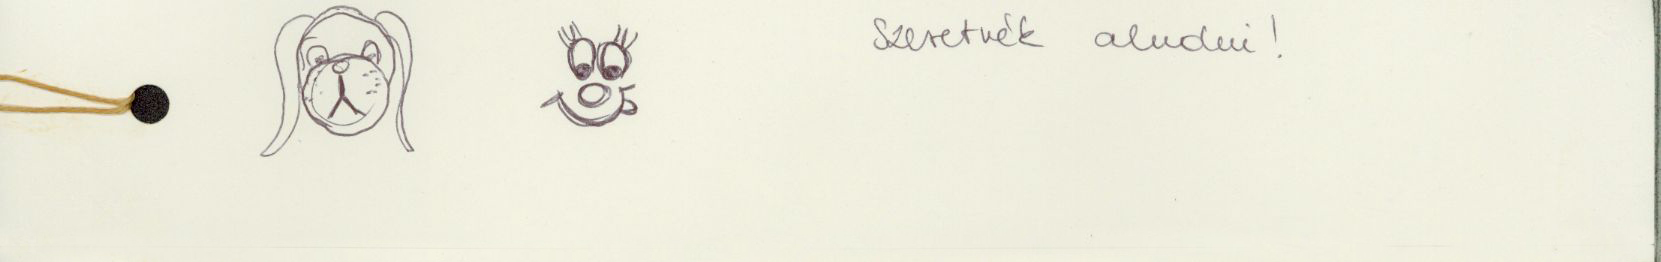 Szeretnék aludni!